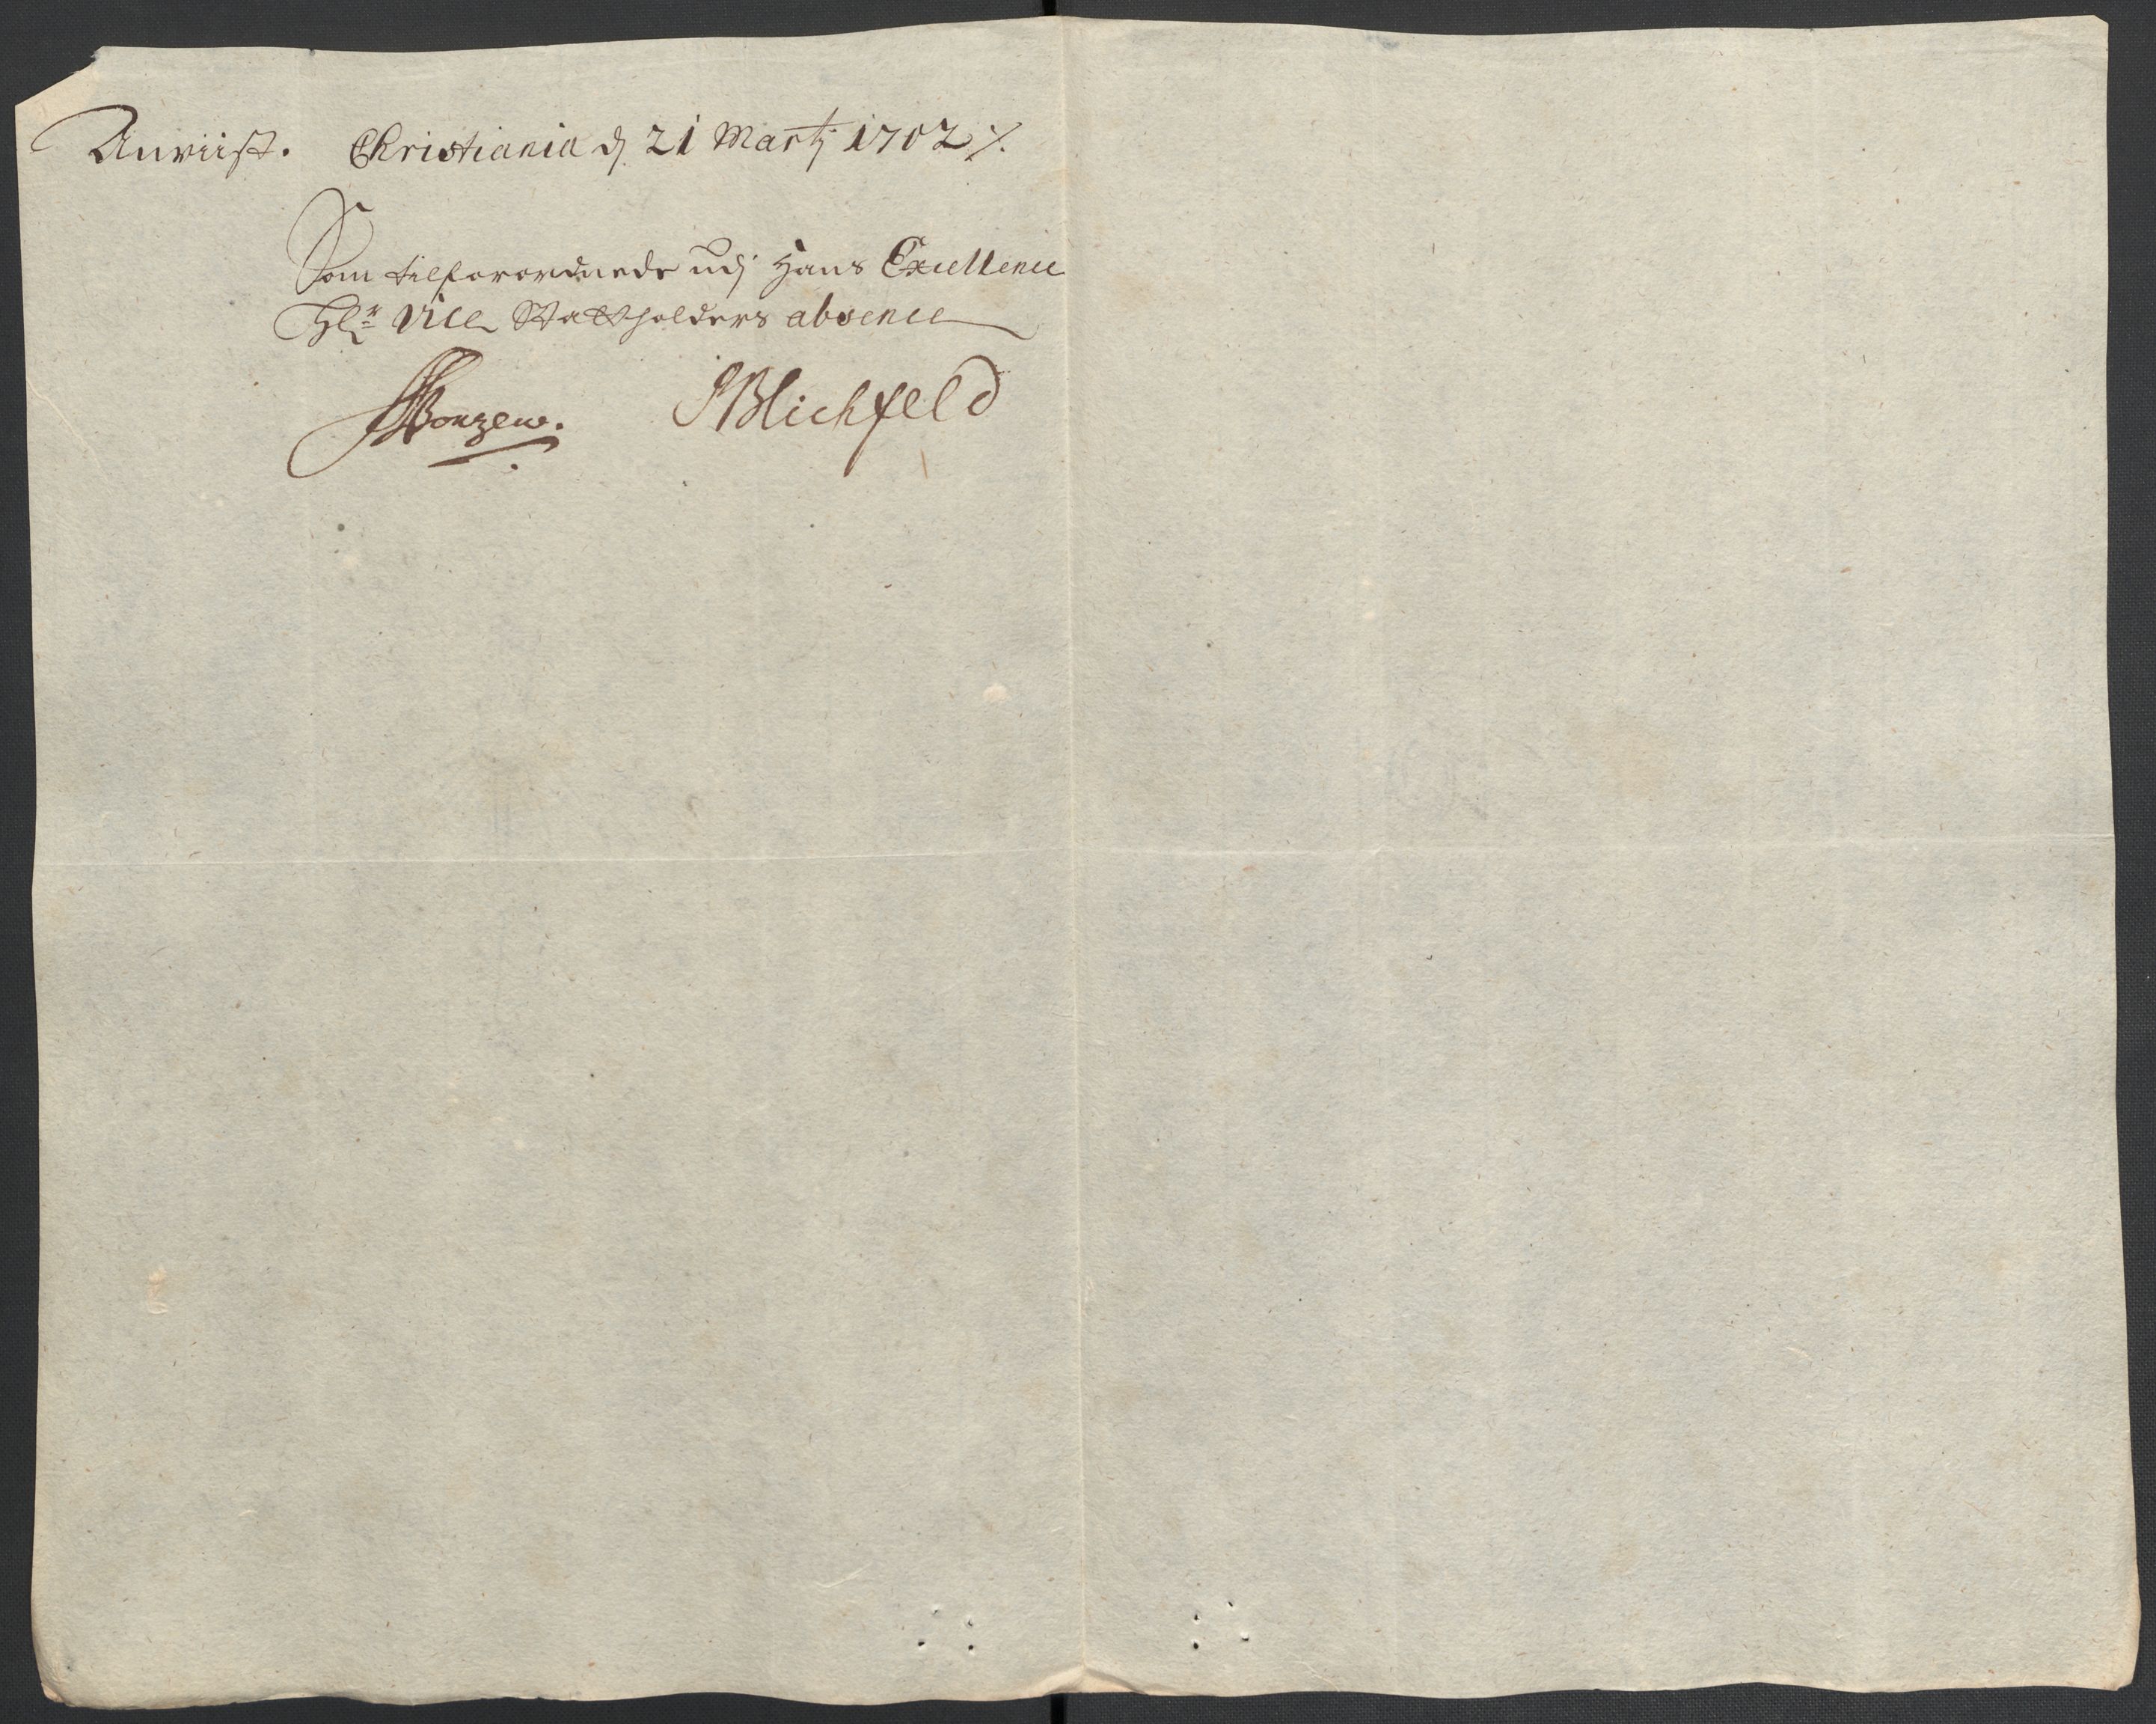 Anviist. Christiania d. 21 Martj 1702 ⁒
Som tilforordnede udj Hans Excellence
Hr. Vice Statholders absence
JBlichfeld